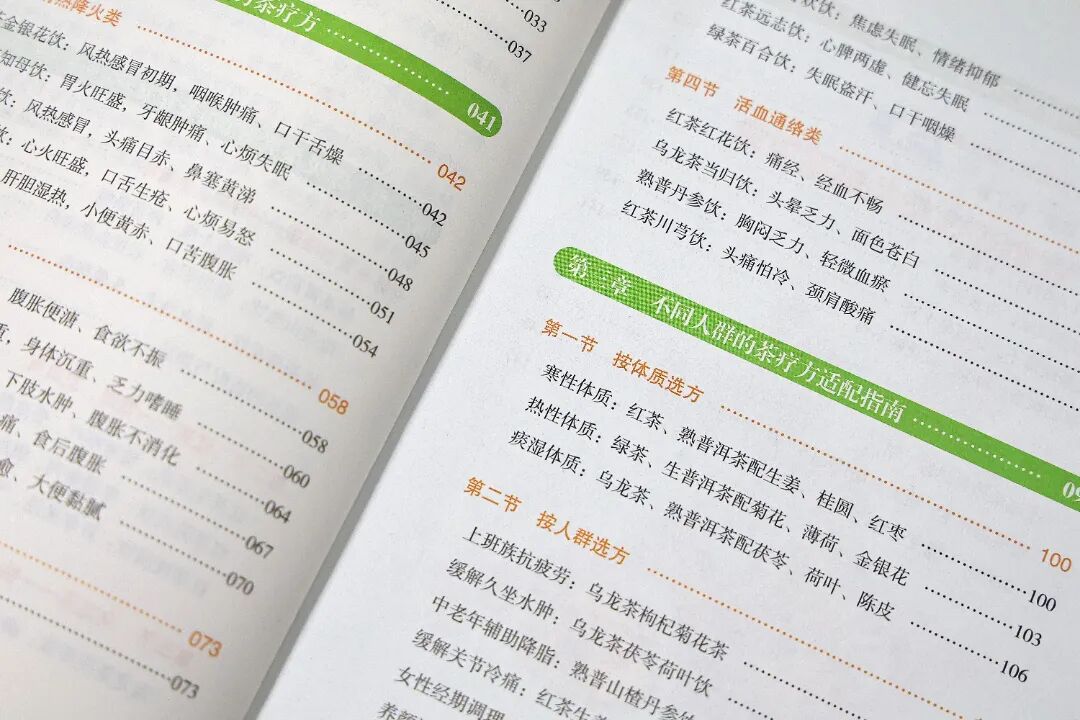 033
037
茶疗方 041
热降火类 042
金银花饮：风热感冒初期，咽喉肿痛、口干舌燥 042
知母饮：胃火旺盛，牙龈肿痛、心烦失眠 045
饮：风热感冒，头痛目赤、鼻塞黄涕 048
饮：心火旺盛，口舌生疮、心烦易怒 051
肝胆湿热，小便黄赤、口苦腹胀 054
058
腹胀便溏、食欲不振 058
身体沉重、乏力嗜睡 060
下肢水肿、腹胀不消化 064
痛、食后腹胀 067
愈、大便黏腻 070
073
073
欢饮：焦虑失眠、情绪抑郁
红茶远志饮：心脾两虚、健忘失眠
绿茶百合饮：失眠盗汗、口干咽燥
第四节 活血通络类
红茶红花饮：痛经、经血不畅
乌龙茶当归饮：头晕乏力、面色苍白
熟普丹参饮：胸闷乏力、轻微血瘀
红茶川芎饮：头痛怕冷、颈肩酸痛
第 章 不同人群的茶疗方适配指南
第一节 按体质选方 100
寒性体质：红茶、熟普洱茶配生姜、桂圆、红枣 100
热性体质：绿茶、生普洱茶配菊花、薄荷、金银花 103
痰湿体质：乌龙茶、熟普洱茶配茯苓、荷叶、陈皮 106
第二节 按人群选方
上班族抗疲劳：乌龙茶枸杞菊花茶
缓解久坐水肿：乌龙茶茯苓荷叶饮
中老年辅助降脂：熟普山楂丹参饮
缓解关节冷痛：红茶生姜
女性经期调理
养颜